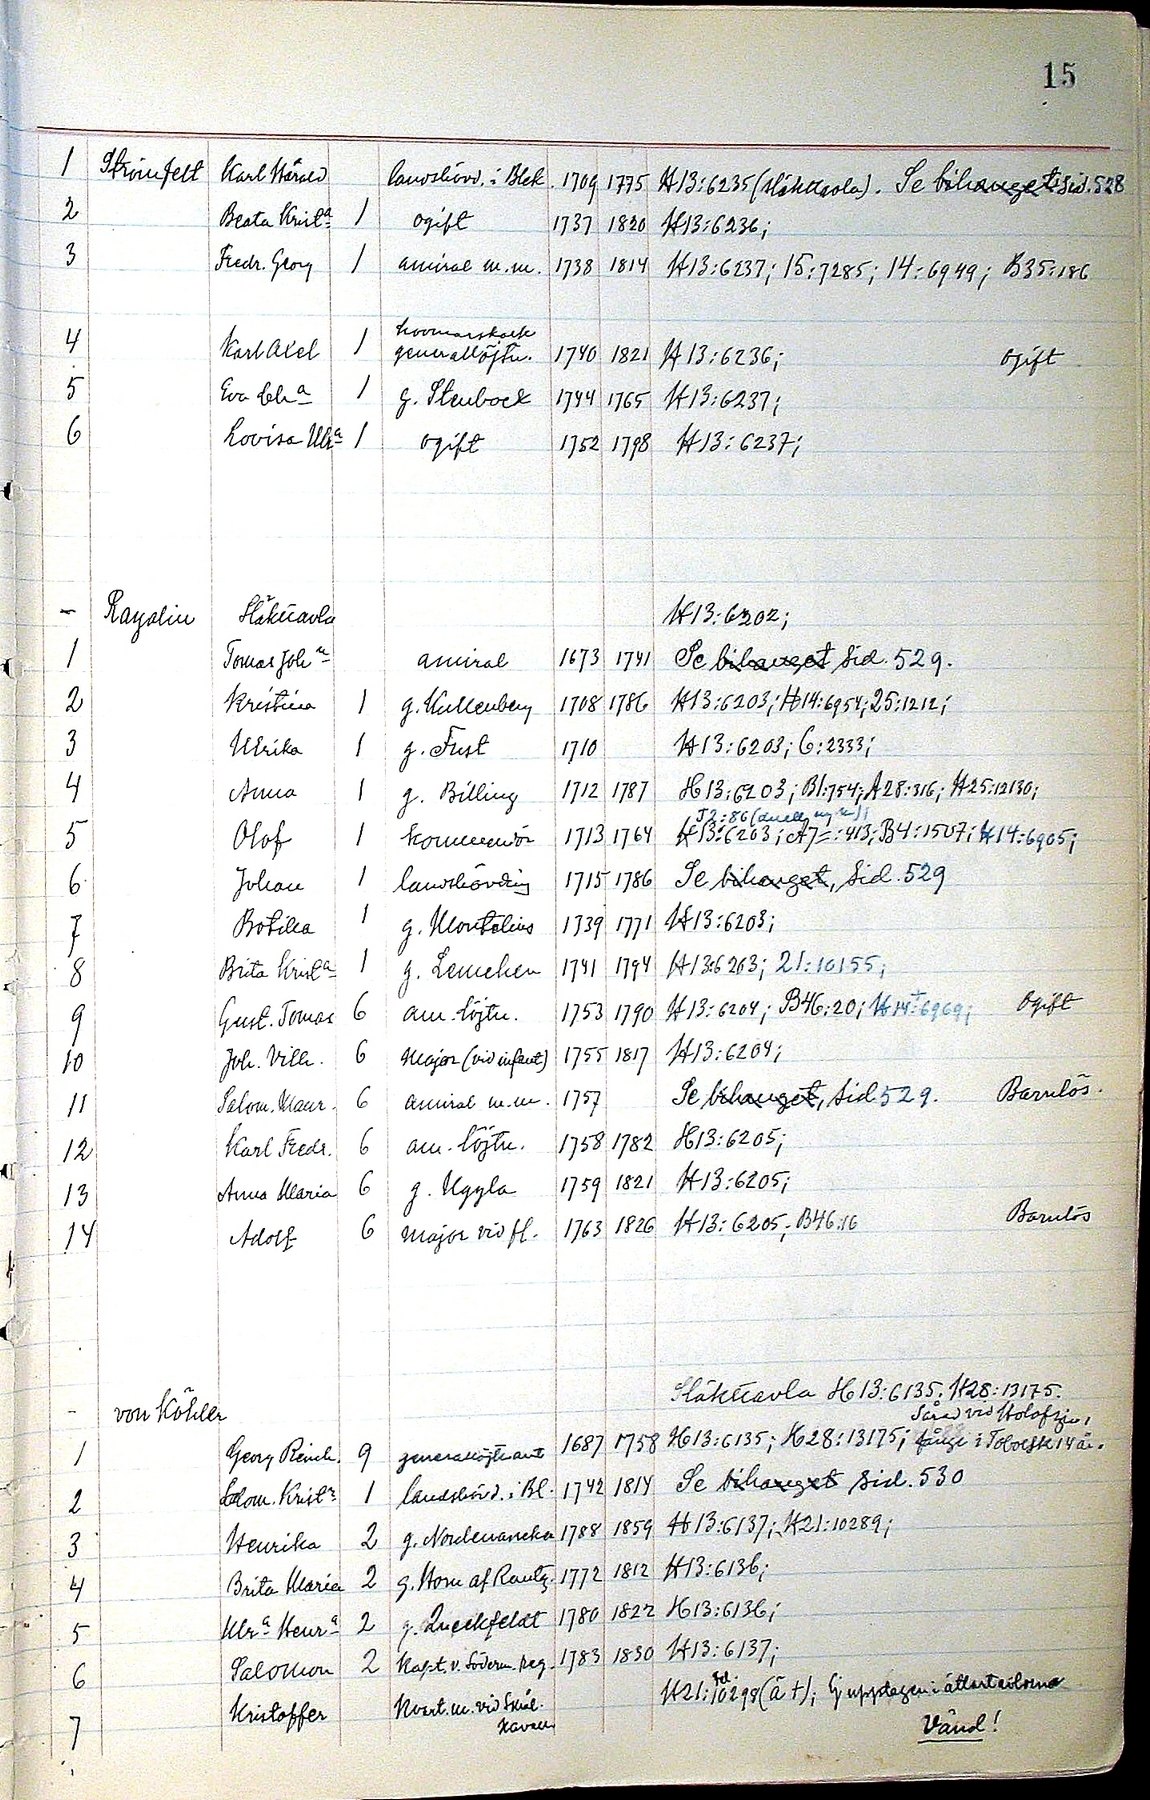 15
1 Strömfelt Karl Harald landshövd. i Blek. 1709 1775 H13:6235 (släkttavla). Se bihanget Sid. 528
2 Beata Krist:a 1 ogift 1737 1820 H13:6236;
3 Fredr. Georg 1 amiral m.m. 1738 1814 H13:6237; 15:7285; 14:6949; B35:186
hovmarskalk
4 Karl Axel 1 generallöjtn. 1740 1821 H13:6236; ogift
5 Eva Ch:a 1 g. Stenbock 1744 1765 H13:6237;
6 Lovisa Ulr:a 1 ogift 1752 1798 H13:6237;
- Rayalin Släkttavla H13:6202;
1 Tomas Joh:n amiral 1673 1741 Se bihanget Sid. 529.
2 Kristina 1 g. Kullenberg 1708 1786 H13:6203; H14:6954; 25:1212;
3 Ulrika 1 g. Fust 1710 H13:6203; 6:2333;
4 Anna 1 g. Billing 1712 1787 H13:6203; B1:754; A28:316; H25:12130;
J2:86 (duell, m.m.);
5 Olof 1 kommendör 1713 1764 H13:6203; A7:413; B4:1507; H14:6905;
6 Johan 1 landshövding 1715 1786 Se bihanget, Sid. 529
7 Botilla 1 g. Montelius 1739 1771 H13:6203;
8 Brita Krist:a 1 g. Lemchen 1741 1794 H13:6203; 21:10155;
9 Gust. Tomas 6 am. löjtn. 1753 1790 H13:6204; B46:20; H14:6969; Ogift
10 Joh. Vilh. 6 Major (vid infant) 1755 1817 H13:6204;
11 Salom. Maur. 6 amiral m.m. 1757 Se bihanget, Sid 529. Barnlös.
12 Karl Fredr. 6 am. löjtn. 1758 1782 H13:6205;
13 Anna Maria 6 g. Uggla 1759 1821 H13:6205;
14 Adolf 6 major vid fl. 1763 1826 H13:6205; B46:16 Barnlös
- von Köhler Släkttavla H13:6135; H28:13175.
Sårad vid Holofzin,
1 Georg Reinh. 9 generallöjtnant 1687 1758 H13:6135; H28:13175; fånge i Tobolsk 14 år.
2 Salom. Krist:n 1 landshövd. i Bl. 1742 1814 Se bihanget Sid. 530
3 Henrika 2 g. Nordenancka 1788 1859 H13:6137; H21:10289;
4 Brita Maria 2 g. Horn af Rantz. 1772 1812 H13:6136;
5 Ulr:a Henr:a 2 g. Queckfeldt 1780 1822 H13:6136;
6 Salomon 2 Kapt. v. Söderm. reg. 1783 1830 H13:6137;
7 Kristoffer Kvart.m. vid Skål. Kavall. H21:10298 (å +); Ej upptagen i ättartavlorna
Vänd!